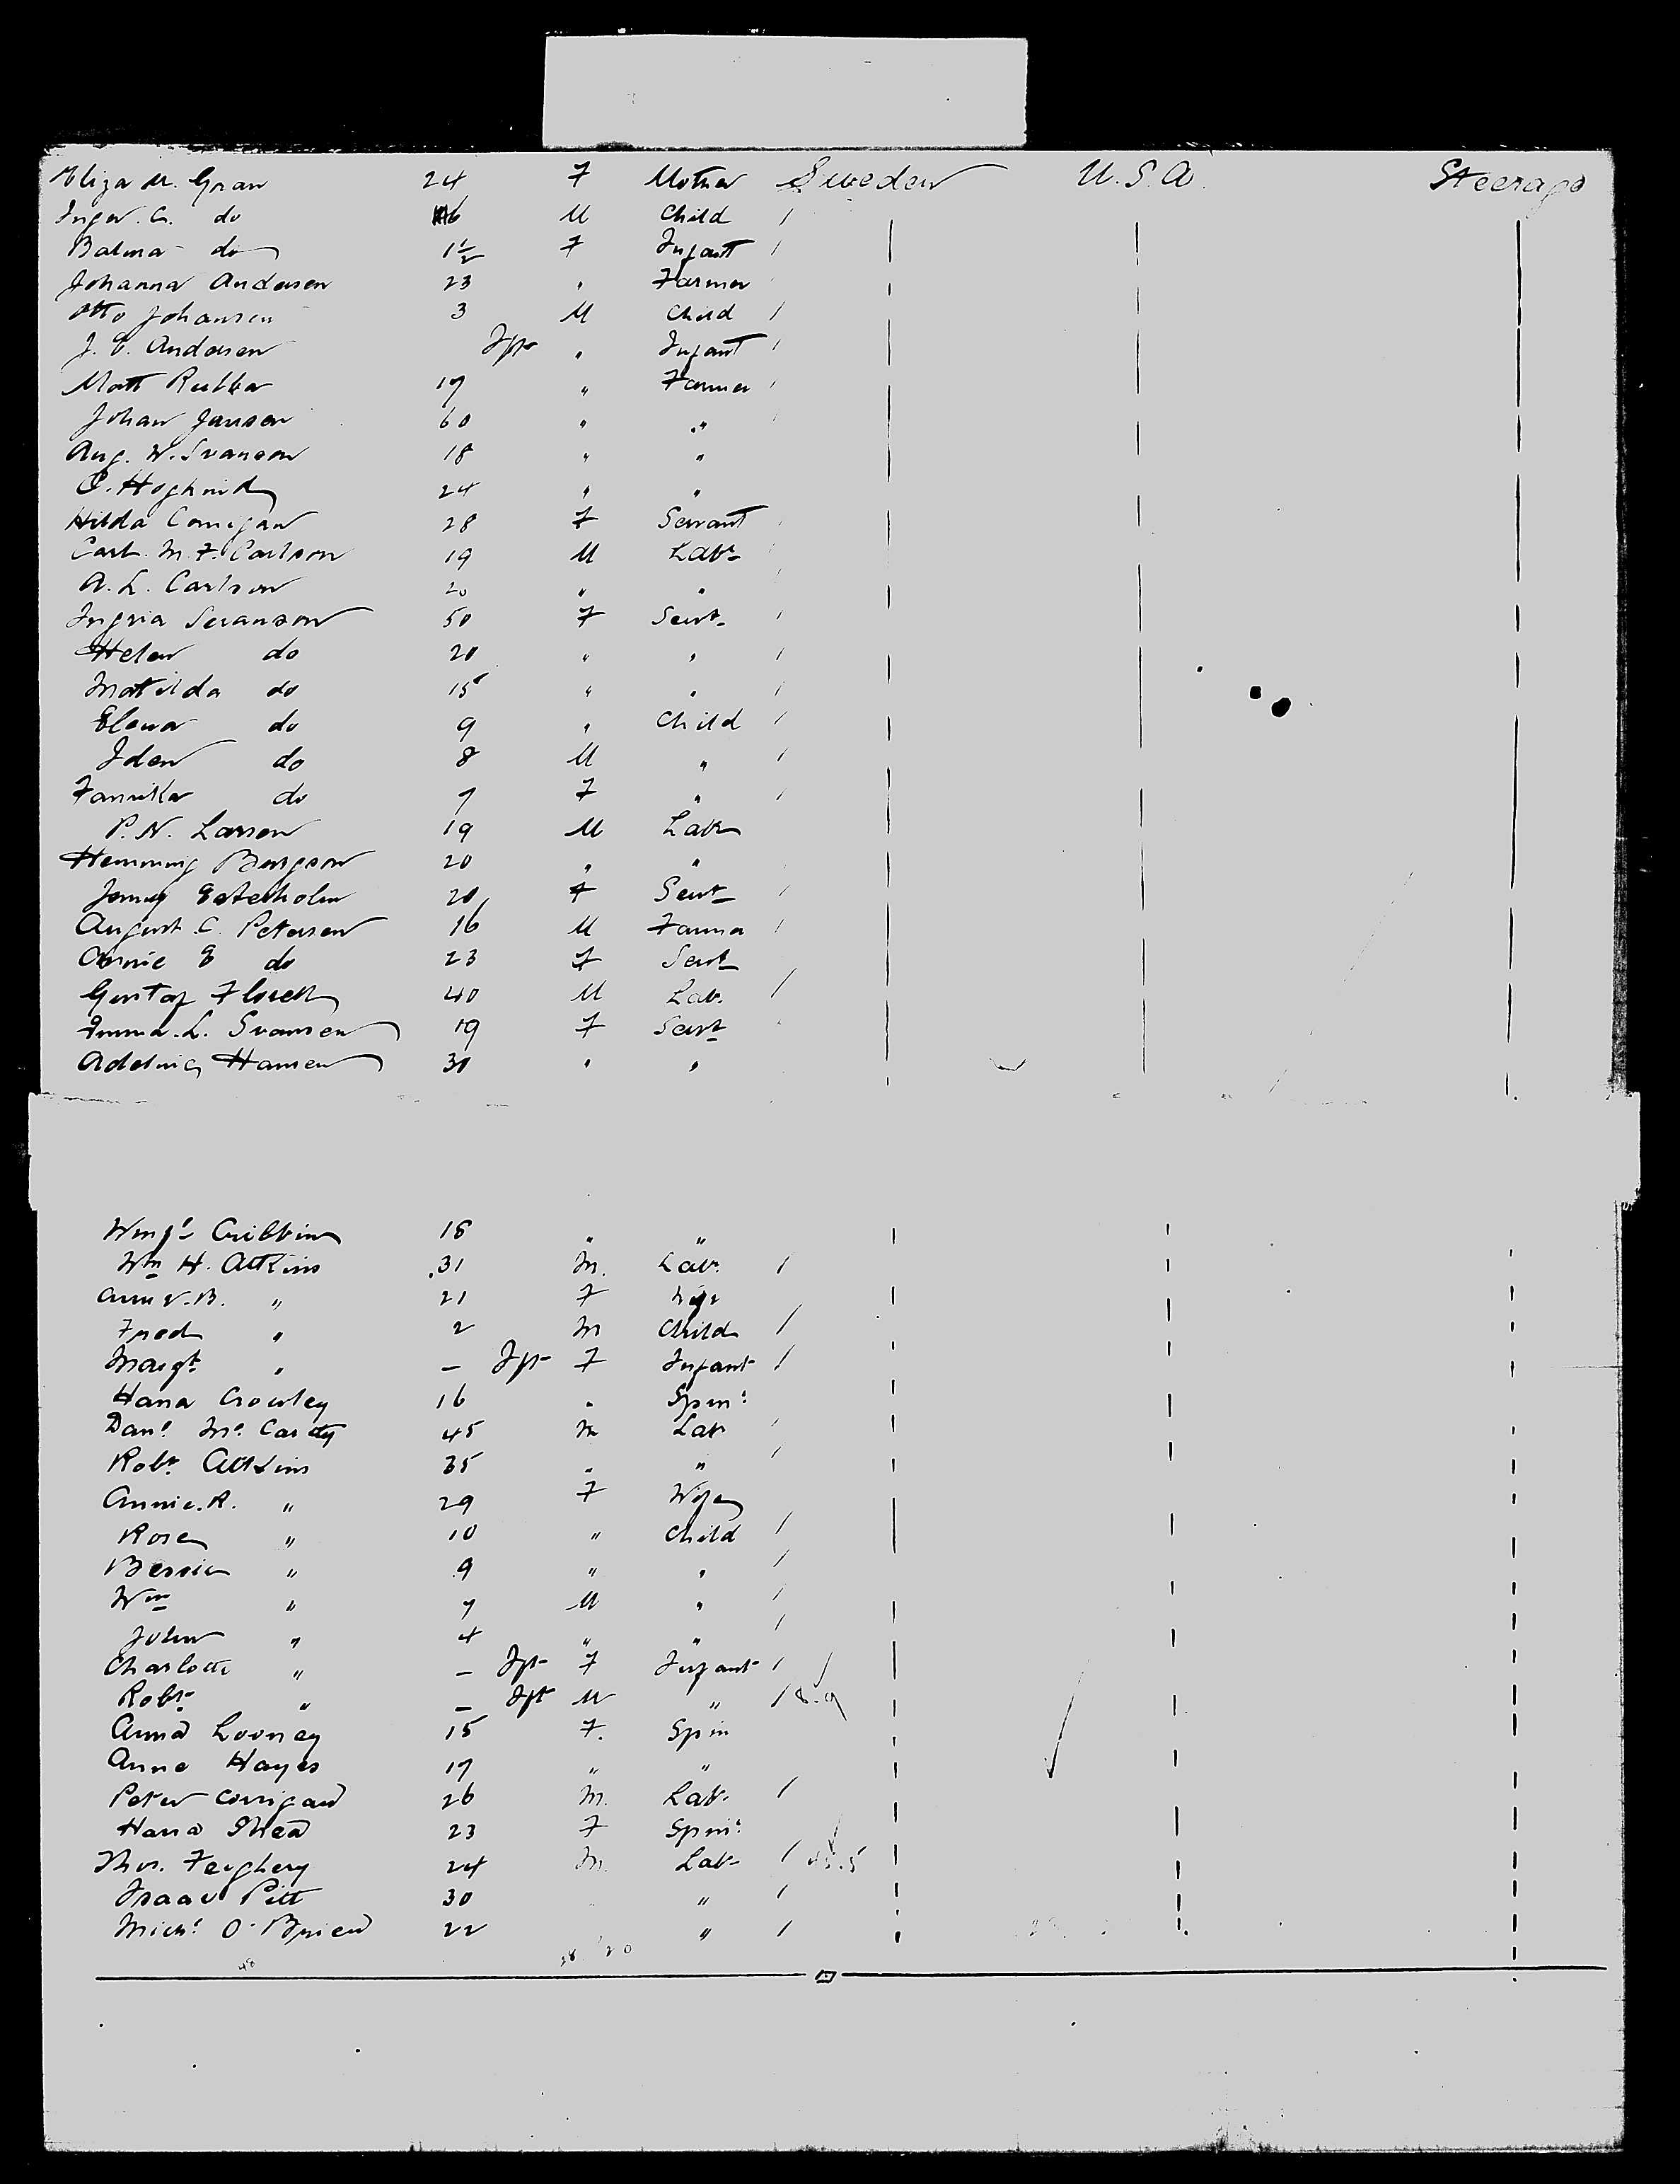 Eliza M. Gran 24 F Mother Sweden U.S.A. Steerage
Inger. G. do 6 M Child /
Balma do 1½ F Infant /
Johanna Andersen 23 " Farmer
Otto Johansen 3 M Child /
J. E. Andersen Inft " Infant /
Matt Rubba 17 " Farmer /
Johan Jansen 60 " "
Aug. W. Svanson 18 " "
24 " "
Hilda Corrigan 28 F Servant
Carl. M. F. Carlson 19 M Labr
A. L. Carlson 20 " "
Ingria Swanson 50 F Servt /
Helen do 20 " " /
Matilda do 15 " " /
Elena do 9 " Child /
Iden do 8 M " /
Fannika do 7 F " /
P. N. Larson 19 M Labr
Hemming Bengson 20 " "
Jenny Esterholm 20 F Servt /
August C. Petersen 16 M Farmer /
Annie E do 23 F Servt
Gustaf 40 M Lab. /
Emma L. Svansen 19 F Servt
Adelina Hansen 30 " "
Cribbin 18 " "
Wm H. Atkins 31 M. Labr. /
Ann V. B. " 21 F Wife
Fred " 2 M Child /
Margt. " — Inft F Infant /
Hana Crowley 16 " Spinr
Danl. McCarty 45 M Lab /
Robt. Atkins 35 " " /
Annie. R. " 29 F Wife
Rose " 10 " Child /
Bessie " 9 " " /
Wm " 7 M " /
John " 4 " " /
Charlotte " — Inft F Infant /
Robt " — Inft M " /
Anna Looney 15 F. Spin
Anne Hayes 17 " "
Peter Corrigan 26 M. Lab. /
Hana Shea 23 F Spinr
Thos. Feighery 24 M. Lab /
Isaac Pitt 30 " /
Michl. O'Brien 22 " /
48 28 20